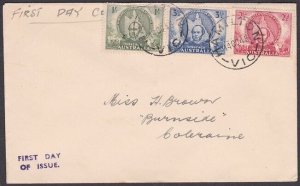 FIRST DAY
AUSTRALIA AUSTRALIA AUSTRALIA
VIC
VIC
Miss H. Brown
"Burnside"
Coleraine
FIRST DAY
OF ISSUE.